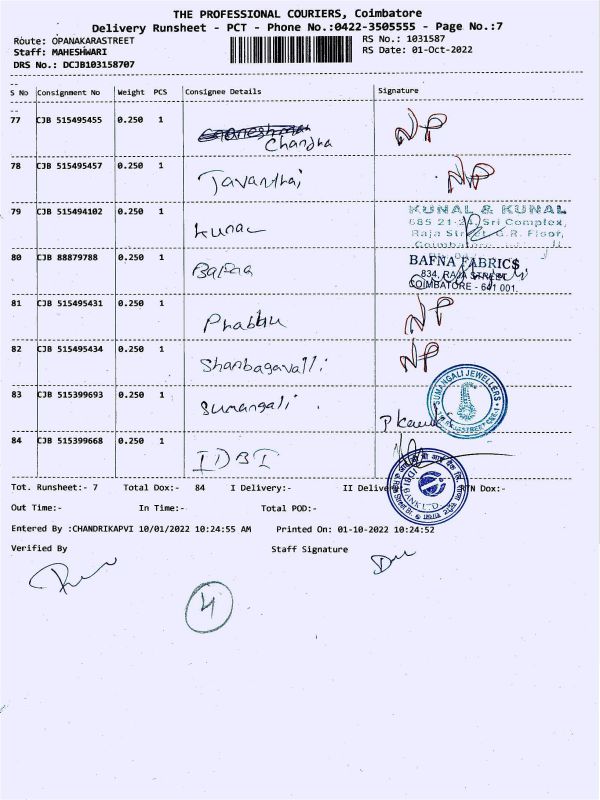 THE PROFESSIONAL COURIERS, Coimbatore
Delivery Runsheet - PCT - Phone No.:0422-3505555 - Page No.:7
Route: OPANAKARASTREET
RS No.: 1031587
Staff: MAHESHWARI
RS Date: 01-Oct-2022
DRS No.: DCJB103158707
S No Consignment No Weight PCS Consignee Details Signature
77 CJB 515495455 0.250 1 Chandra NP
78 CJB 515495457 0.250 1 Javanthai NP
79 CJB 515494102 0.250 1 Kunal
KUNAL & KUNAL
685 21-24, Sri Complex,
Raja Street, G.R. Floor,
80 CJB 88879788 0.250 1 Bafna
BAFNA FABRICS
834, RAJA STREET
COIMBATORE - 641 001.
81 CJB 515495431 0.250 1 Phabhu NP
82 CJB 515495434 0.250 1 Shanbagavalli NP
83 CJB 515399693 0.250 1 Sumangali
SUMANGALI JEWELLERS
84 CJB 515399668 0.250 1 IDBI
IDBI BANK LTD.
Tot. Runsheet:- 7 Total Dox:- 84 I Delivery:- II Delivery RTN Dox:-
Out Time:- In Time:- Total POD:-
Entered By :CHANDRIKAPVI 10/01/2022 10:24:55 AM Printed On: 01-10-2022 10:24:52
Verified By Staff Signature
4